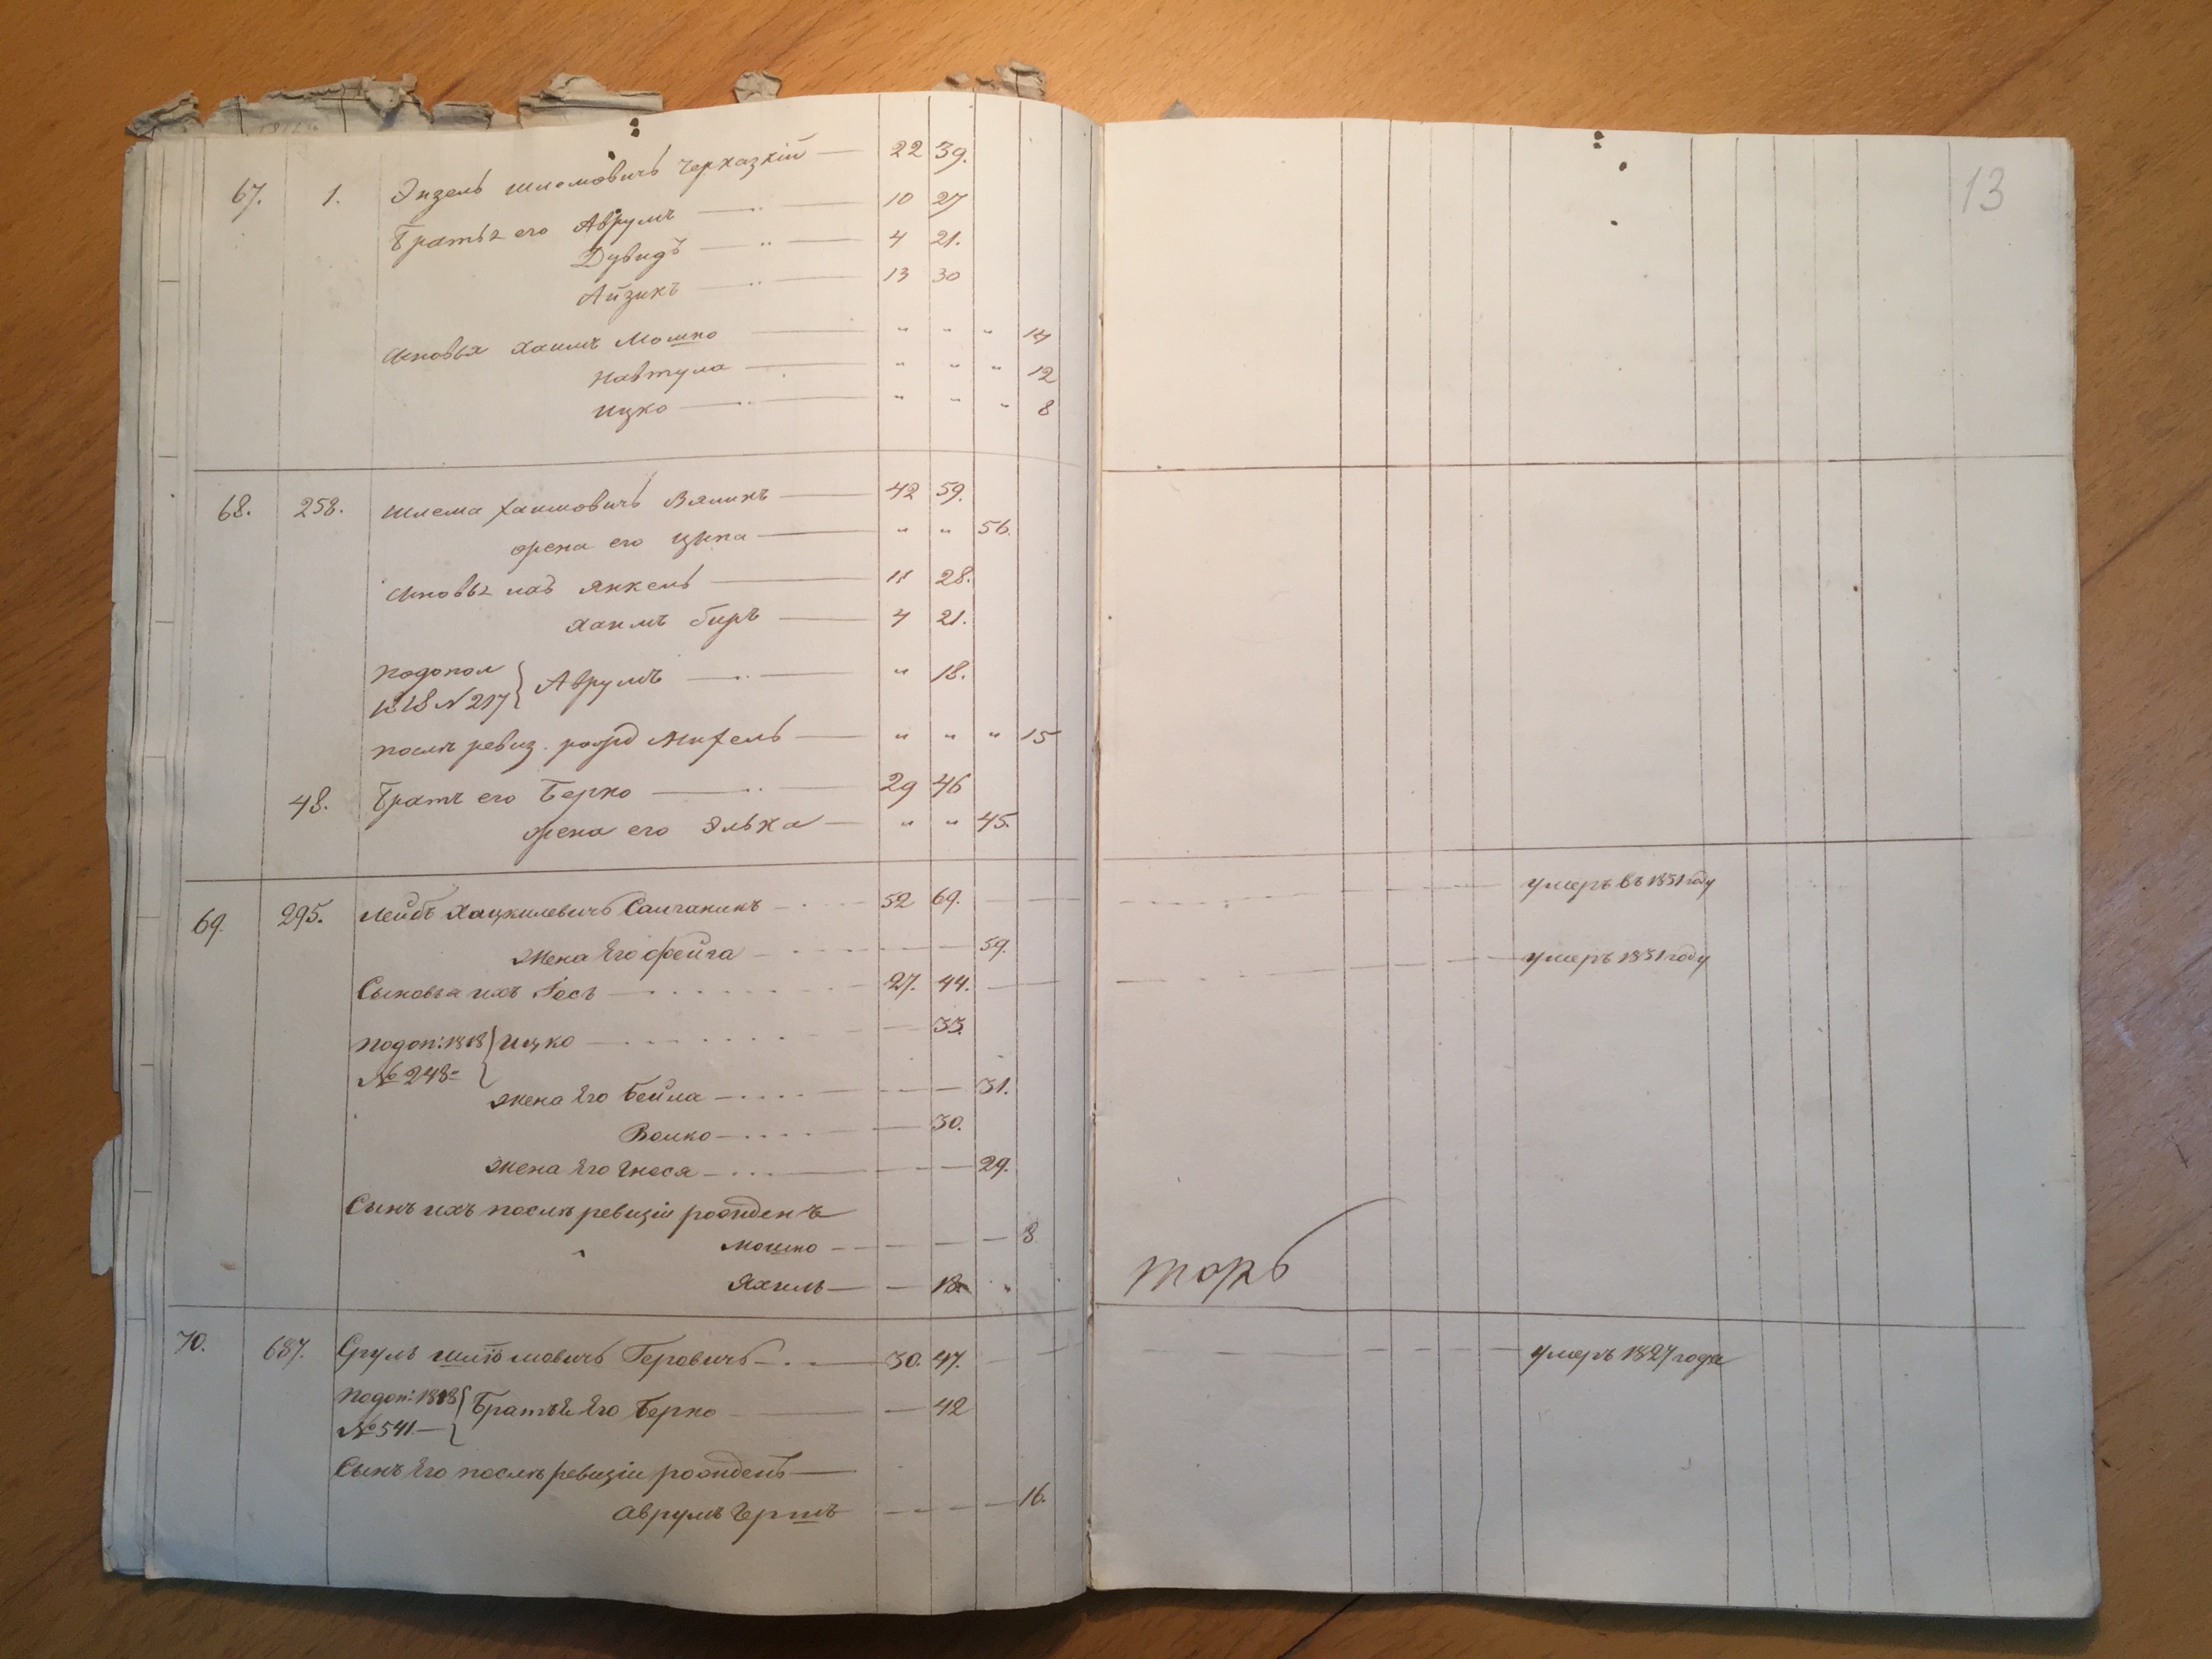 13
67. 1. Энзель Шлемовичъ Черказкій 22 39.
Братья его Аврумъ 10 27
Дувидъ 4 21.
Айзикъ 13 30
Сыновья Хаимъ Мошко " " " 14
Навтула " " " 12
Ицко " " " 8
68. 258. Шлема Хаимовичъ Вяликъ 42 59.
жена его Цыпа " " 56.
Сыновья Янкель 11 28.
Хаимъ Беръ 4 21.
Подопол Аврумъ " 18.
1818 N 217
после ревиз. рожд " " " 15
48. Братъ его Берко 29 46
жена его Элька " " 45.
69. 295. Лейбъ Хацкилевичъ 52 69. умеръ въ 1831 году
Жена Его Фейга 59.
Сыновья ихъ Іосъ 27. 44. умеръ 1831 году
подоп: 1818 Ицко 33.
№ 248
жена Его Бейла 31.
Волко 30.
жена Его Гнеся 29.
Сынъ ихъ после ревизіи рожденъ
Мошко 8
Яхиль 18
70. 687. Сруль Шліомовичъ Геровичъ 30. 47. умеръ 1827 года
подоп: 1818 Братья Его Берко 42
№ 541
Сынъ Его после ревизіи рожденъ
Аврумъ Гершъ 16.